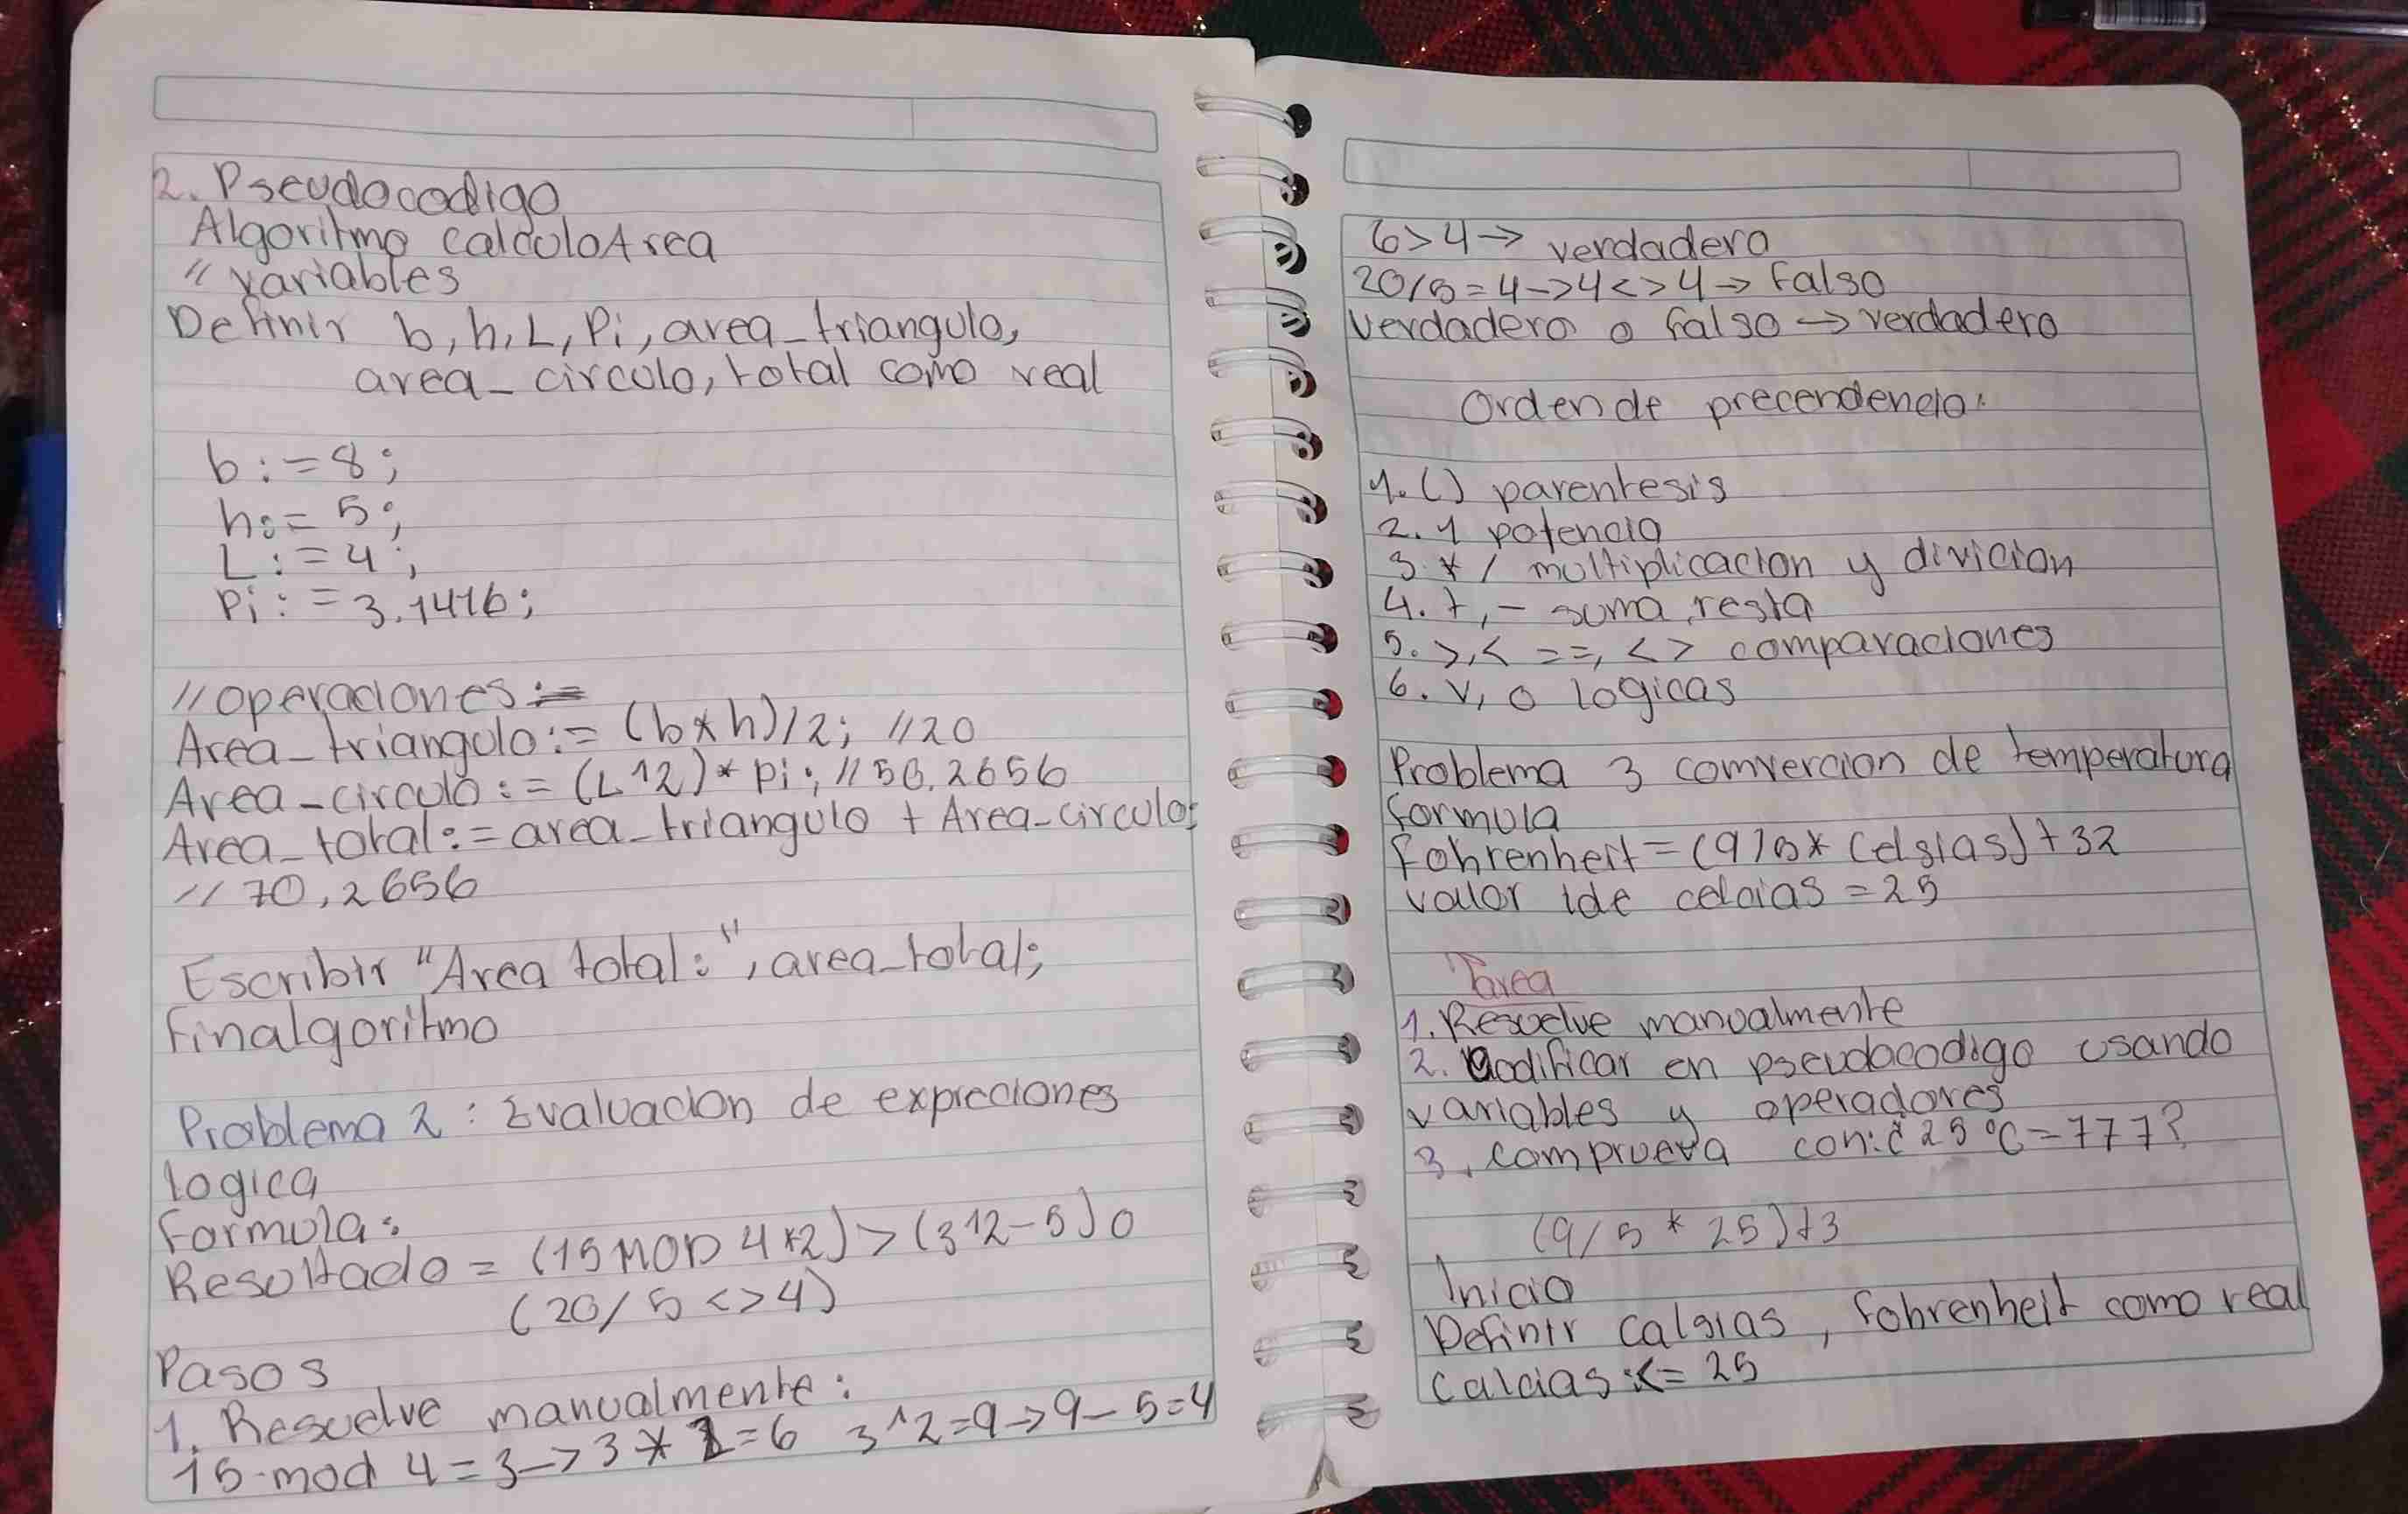 2. Pseudocodigo
Algoritmo calculoArea
// variables
Definir b, h, L, Pi, area_triangulo,
area_circulo, total como real
b:=8;
h:= 5;
L:=4;
Pi:=3.1416;
//operaciones:=
Area_triangulo:= (b*h)/2; //20
Area_circulo:=(L^2)*pi; //50.2656
Area_total:=area_triangulo + Area_circulo;
// 70,2656
Escribir "Area total:", area_total;
Finalgoritmo
Problema 2: Evaluacion de expreciones
logica
Formula:
Resultado = (15 MOD 4*2) > (3^2-5) o
(20/5 <>4)
Pasos
1. Resuelve manualmente:
15 mod 4=3->3*2=6 3^2=9->9-5=4
6>4-> verdadero
20/5=4->4<>4-> Falso
Verdadero o falso -> verdadero
Orden de precendencia:
1. () parentesis
2. ^ potencia
3. * / multiplicacion y divicion
4. +, - suma, resta
5. >,< ==, <> comparaciones
6. Y, O logicas
Problema 3 comvercion de temperatura
formula
Fohrenheit=(9/5* Celsias)+32
valor ide celcias =25
Tarea
1. Resuelve manualmente
2. Codificar en pseudocodigo usando
variables y operadores
3. comprueva con:¿25°C=77?
(9/5 * 25)+3
Inicio
Definir Calsias, Fohrenheit como real
Calcias:<= 25